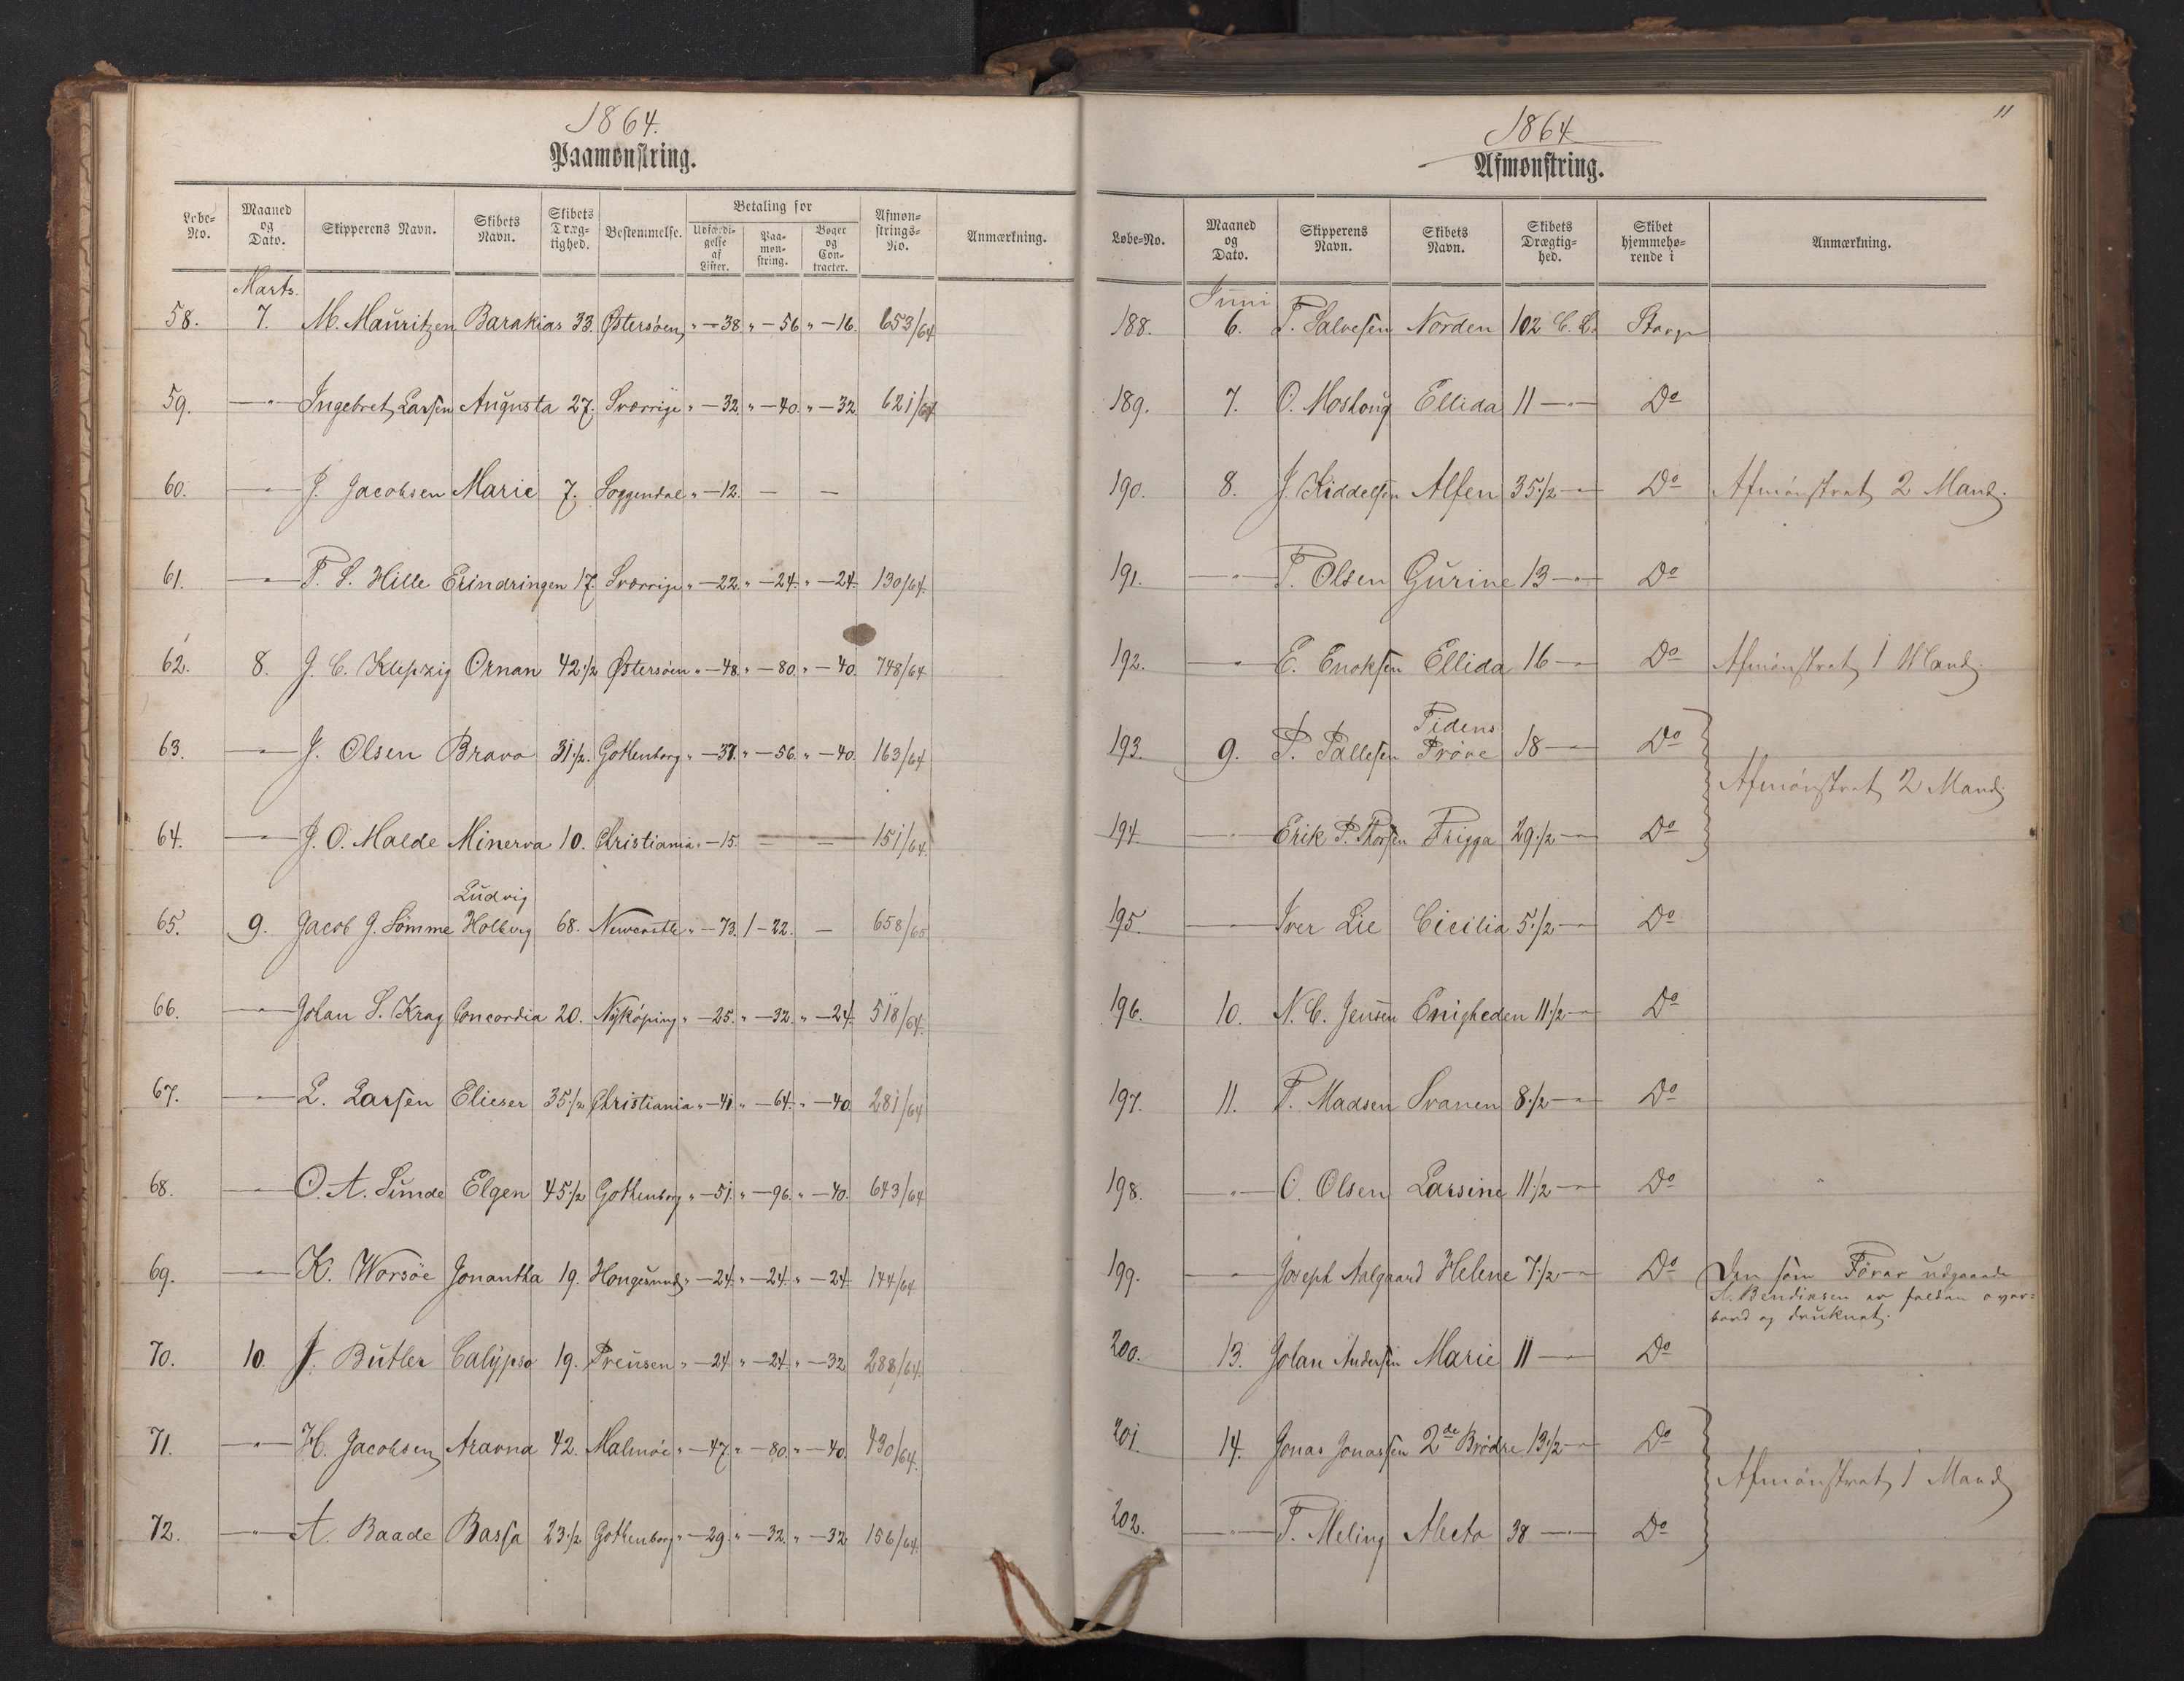 1864.
Paamønstring.
Løbe-No. Maaned og Dato. Skipperens Navn. Skibets Navn. Skibets Dræg-tighed. Bestemmelse. Betaling for Udfærdi-gelse af Lister. Paa-møn-string. Bøger og Con-tracter. Afmøn-strings-No. Anmærkning.
Marts.
58. 7. M. Mauritzen Barakias 33. Østersøen " - 38 " - 56 " - 16. 653/64
59. - " - Ingebret Larsen Augusta 27. Sverrige " - 32. " - 40. " - 32 621/64
60. - " - J. Jacobsen Marie 7. Soggendal " - 12. - -
61. - " - P. S. Hille Erindringen 17. Sverrige " - 22. " - 24. " - 24. 130/64.
62. 8. J. C. Klepzig Ornan 42 1/2 Østersøen " - 48. " - 80. " - 40. 748/64
63. - " - J. Olsen Bravo 31 1/2. Gothenborg " - 37. " - 56. " - 40. 163/64
64. - " - J. O. Malde Minerva 10. Christiania " - 15. - - 151/64.
Ludvig
65. 9. Jacob J. Sømme Holberg 68. Newcastle " - 73. 1 - 22. - 658/65
66. - " - Johan S. Krag Concordia 20. Nykøping " - 25. " - 32. " - 24. 518/64.
67. - " - L. Larsen Elieser 35 1/2 Christiania " - 41. " - 64. " - 40. 281/64
68. - " - O. A. Sunde Elgen 45 1/2 Gothenborg " - 51. " - 96. " - 40. 643/64
69. - " - K. Worsöe Jonantha 19. Hougesund " - 24. " - 24. " - 24. 144/64
70. 10. J. Butler Calypso 19. Preusen " - 24. " - 24. " - 32. 288/64.
71. - " - H. Jacobsen Aravna 42. Malmöe " - 47. " - 80. " - 40. 430/64.
72. - " - A. Baade Bassa 23 1/2 Gothenborg " - 29. " - 32. " - 32 156/64.
11
1864
Afmønstring.
Løbe-No. Maaned og Dato. Skipperens Navn. Skibets Navn. Skibets Drægtig-hed. Skibet hjemmehø-rende i Anmærkning.
Juni
188. 6. T. Salvesen Norden 102 C. L. Stavgr
189. 7. O. Moshoug Ellida 11 - " - Do
190. 8. J. Kiddelsen Alfen 35 1/2 - " - Do Afmønstret 2 Mand.
191. - " - T. Olsen Gurine 13 - " - Do
192. - " - E. Enoksen Ellida 16 - " - Do Afmønstret 1 Mand.
Tidens
193. 9. P. Pallesen Prøve 18 - " - Do
Afmønstret 2 Mand.
194. - " - Erik P. Thorsen Frigga 29 1/2 - " - Do
195. - " - Iver Lie Cicilia 5 1/2 - " - Do
196. 10. N. C. Jensen Enigheden 11 1/2 - " - Do
197. 11. T. Madsen Svanen 8 1/2 - " - Do
198. - " - O. Olsen Larsine 11 1/2 - " - Do
199. - " - Joseph Aalgaard Helene 7 1/2 - " - Do Den som Fører udgaaede
A. Bendiksen er falden over=
bord og druknet.
200. 13. Johan Andersen Marie 11 - " - Do
201. 14. Jonas Jonassen 2de Brødre 13 1/2 - " - Do
Afmønstret 1 Mand
202. - " - T. Meling Alecto 38 - " - Do